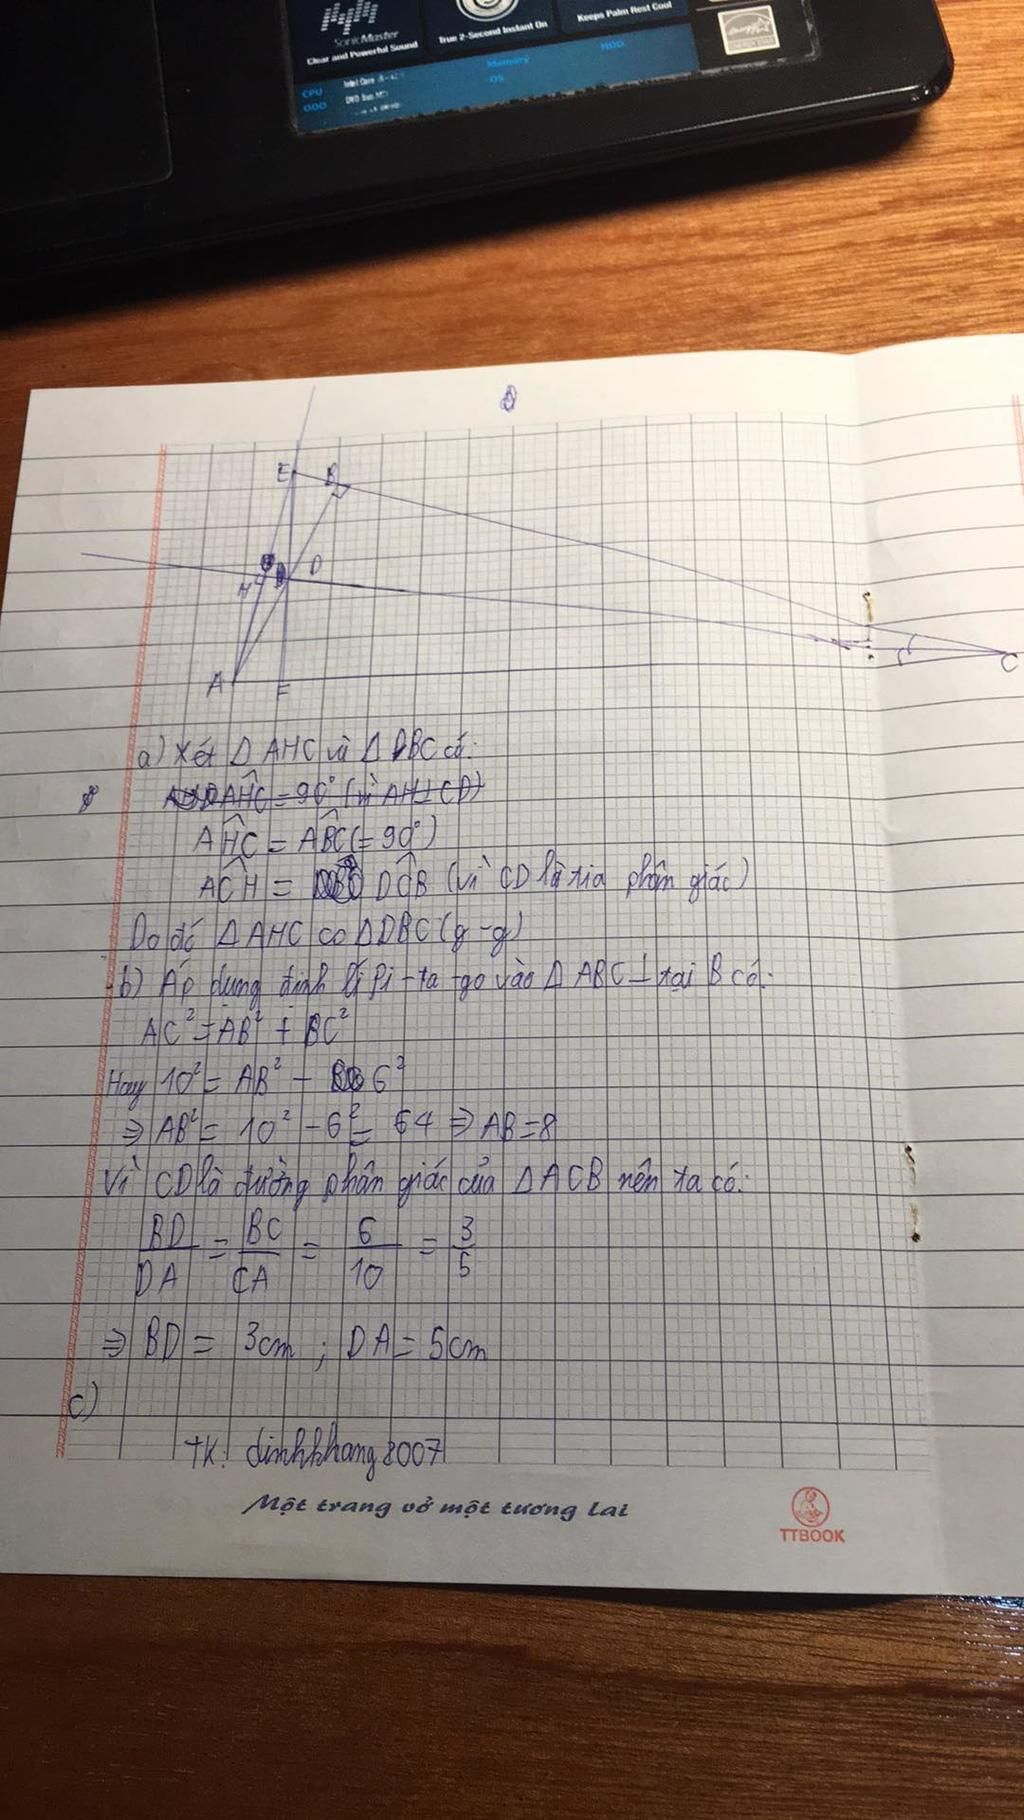 SonicMaster
Clear and Powerful Sound
True 2-Second Instant On
Keeps Palm Rest Cool
CPU
Intel Core
Memory
HDD
ODD
OS
E
B
H
D
A
F
C
a) Xét Δ AHC và Δ DBC có:
AHC = 90° (vì AH⊥CD)
AHC = ABC (= 90°)
ACH = DCB (vì CD là tia phân giác)
Do đó Δ AHC ∽ ΔDBC (g-g)
b) Áp dụng định lí Pi-ta-go vào Δ ABC ⊥ tại B có:
AC² = AB² + BC²
Hay 10² = AB² - 6²
⇒ AB² = 10² - 6² = 64 ⇒ AB = 8
Vì CD là đường phân giác của ΔACB nên ta có:
BD/DA = BC/CA = 6/10 = 3/5
⇒ BD = 3cm ; DA = 5cm
c)
TK: dinhkhang2007
Một trang vở một tương lai
TTBOOK